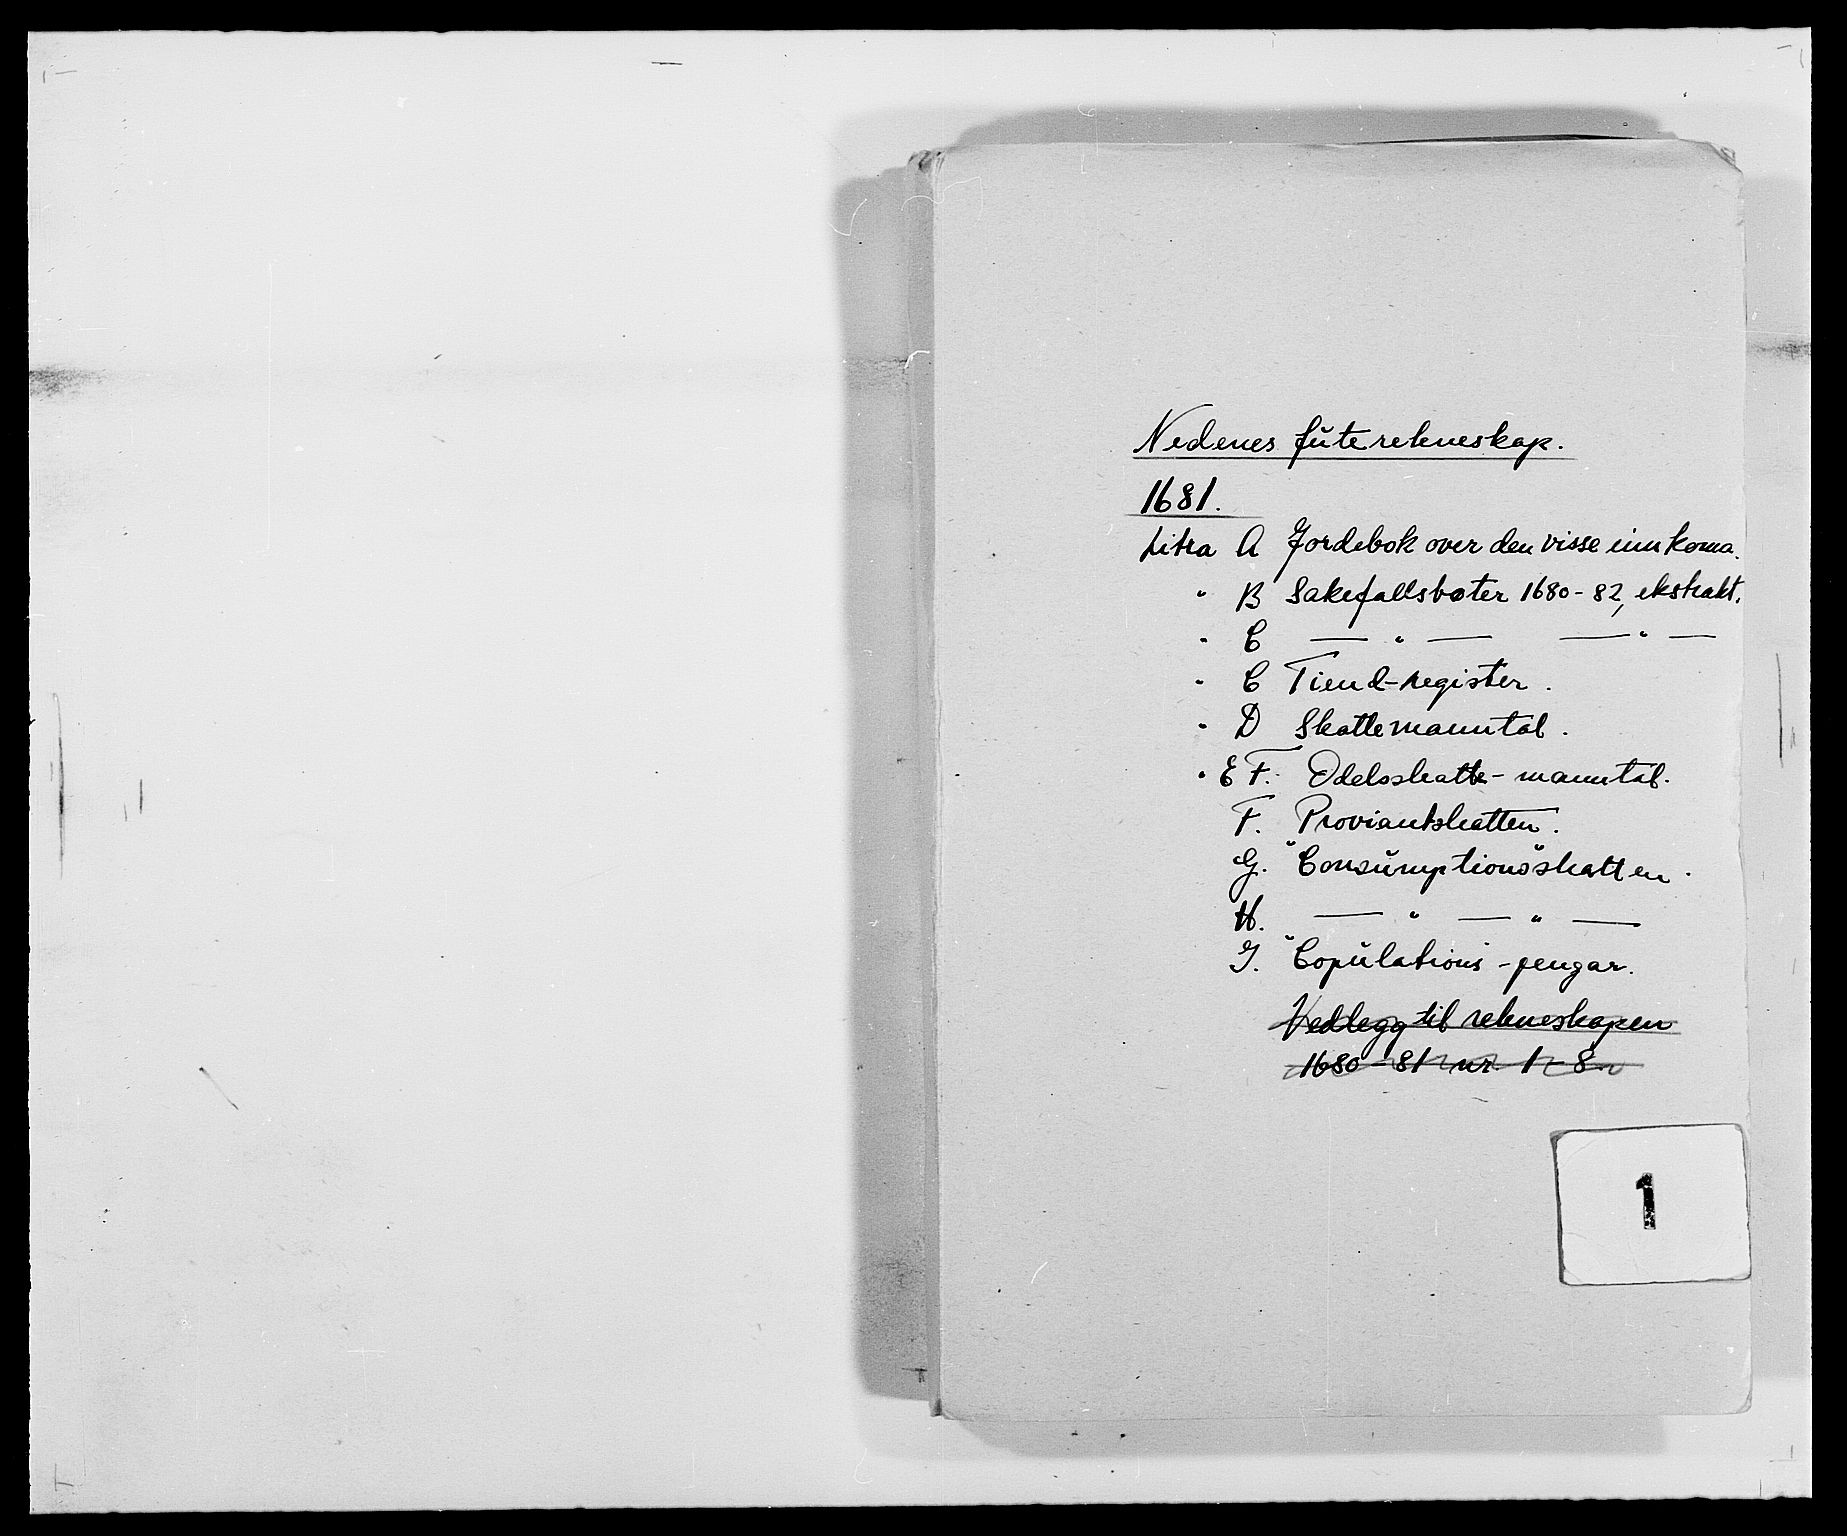 Nedenes futerekneskap.
1681.
Litra A Jordebok over den visse innkoma.
" B Sakefallsbøter 1680-82, ekstrakt.
" C — " — — " —
" C Tiend-register.
" D Skattemanntal.
" E F. Odelsskatte-manntal.
F. Proviantskatten.
G. "Consumptions"skatten.
H. — " — " —
I. "Copulations"-pengar.
Vedlegg til rekneskapen
1680-81 nr. 1-8.
1